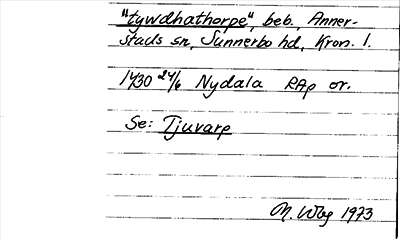 "tywdhathorpe" beb., Anner-
stads sn, Sunnerbo hd, Kron. l.
1430 24/6 Nydala RAp or.
Se: Tjuvarp
M. Wbg 1973